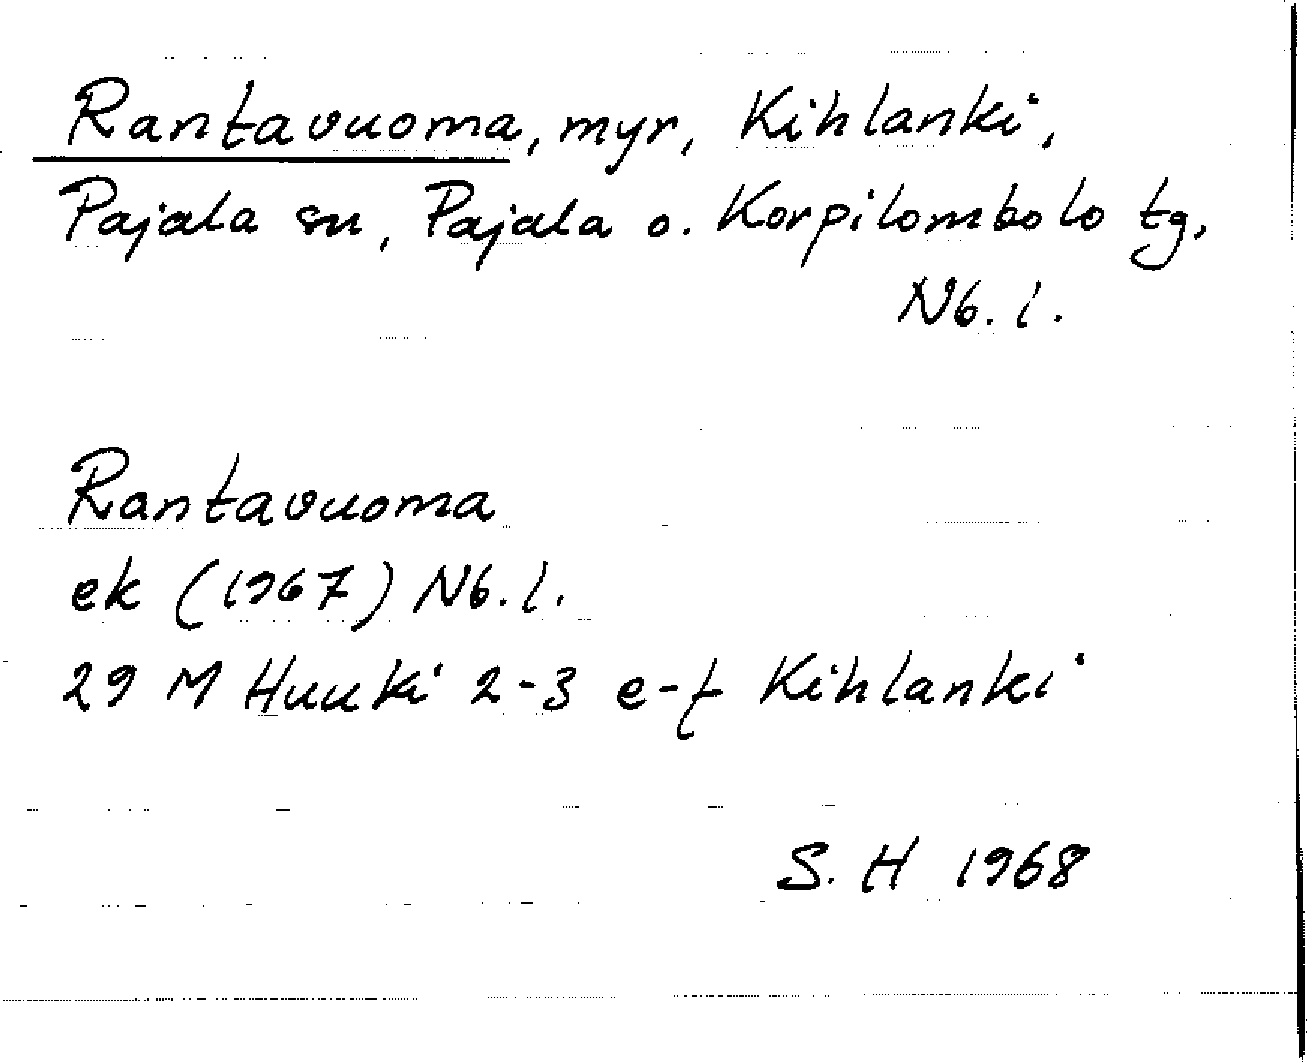 Rantavuoma, myr, Kihlanki,
Pajala sn, Pajala o. Korpilombolo tg,
Nb. l.
Rantavuoma
ek (1967) Nb. l.
29 M Huuki 2-3 e-f Kihlanki
S. H 1968